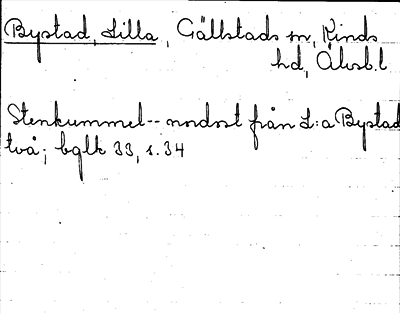 Bystad, Lilla, Gällstads sn, Kinds
hd, Älvsb.l
Stenkummel -- nordost från L:a Bystad
två; bglk 33, s.34